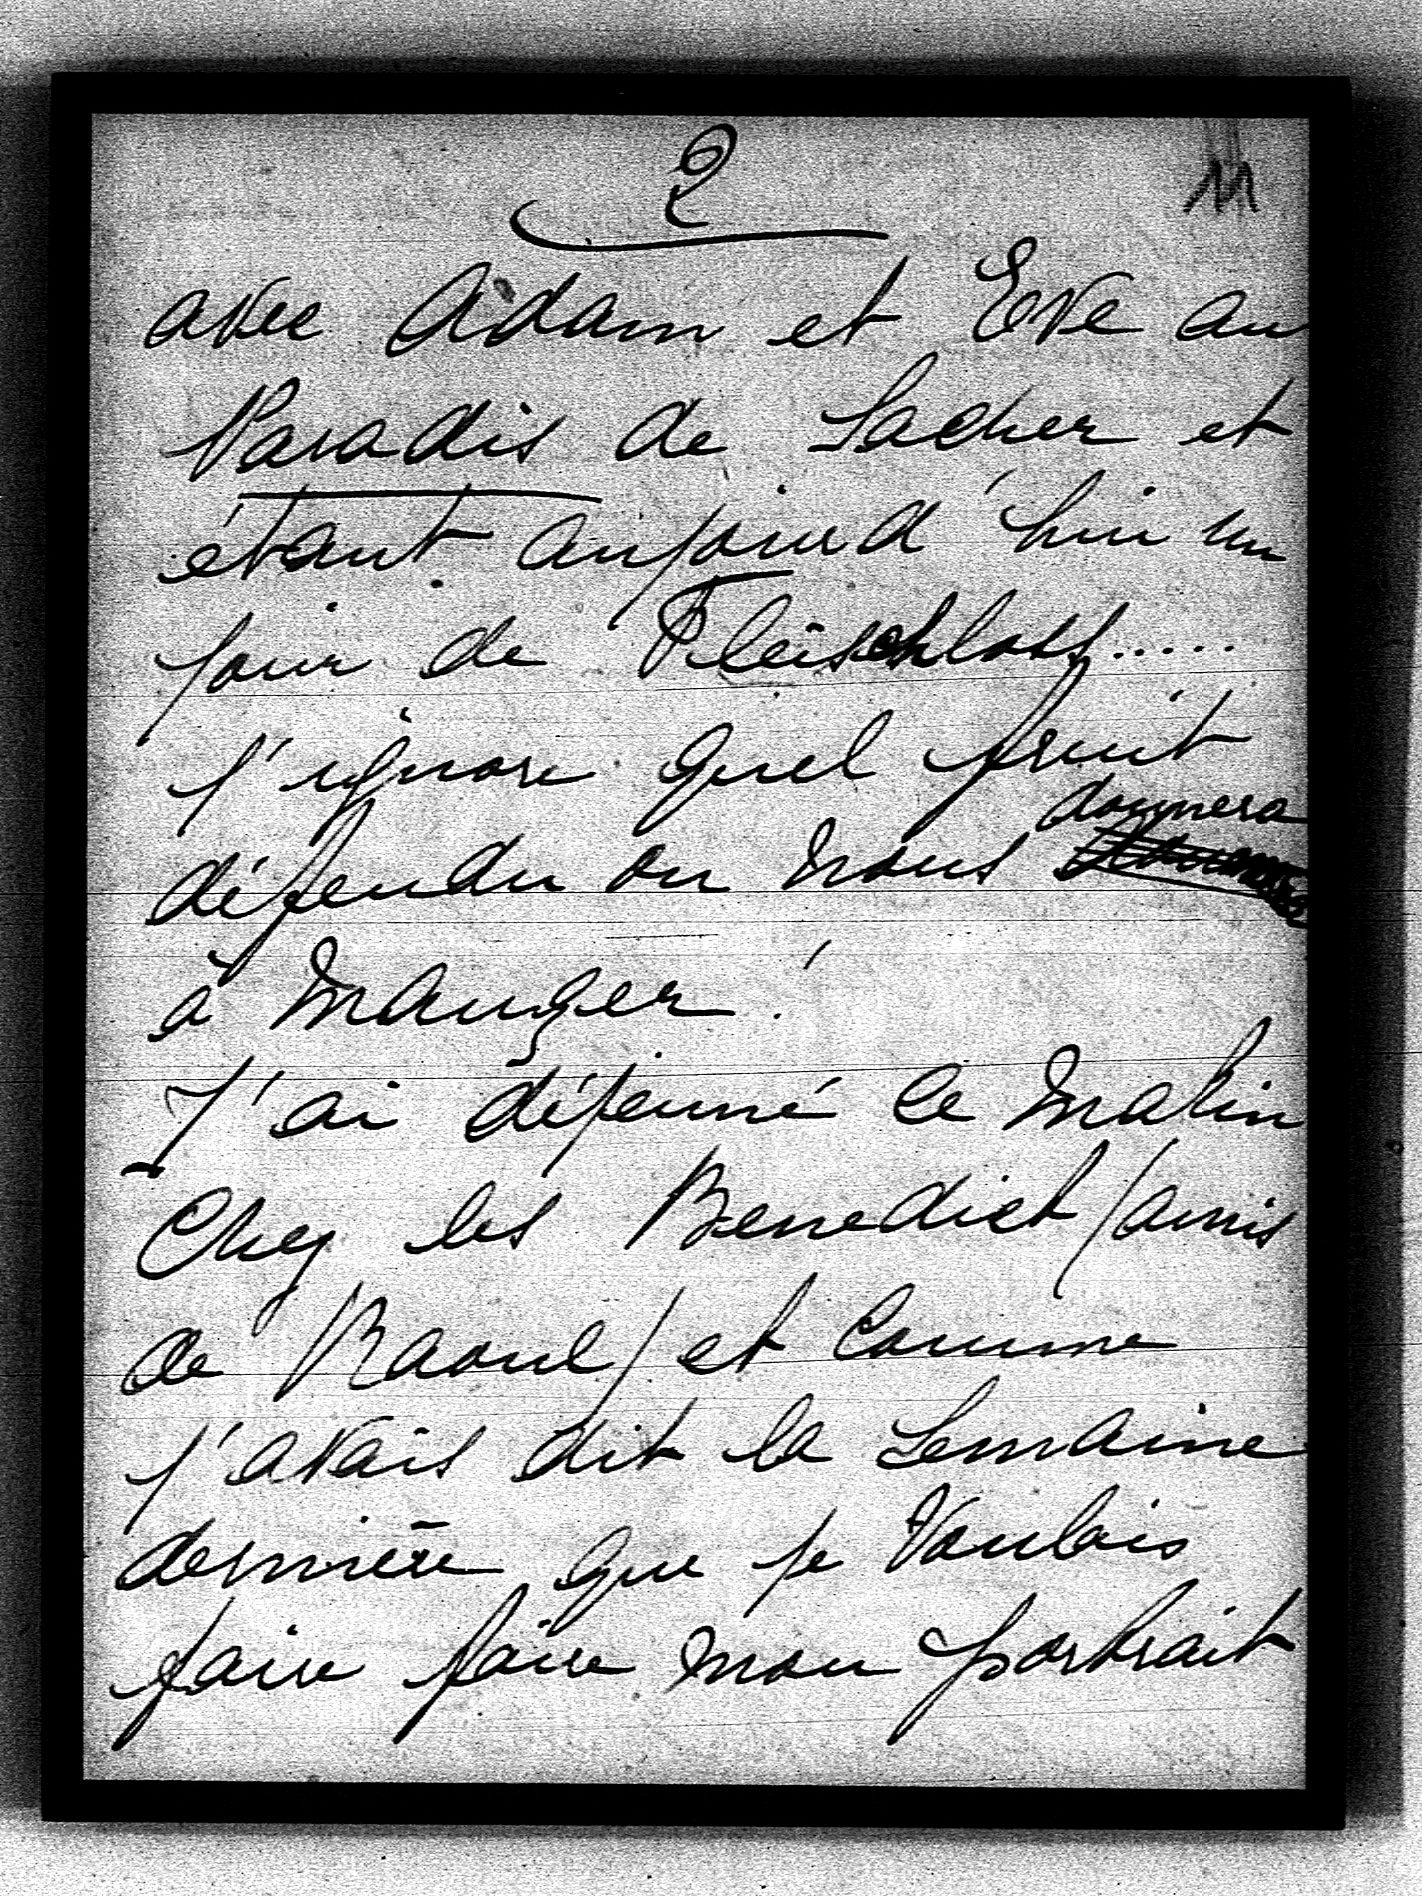 2
11
avec Adam et Eve au
Paradis de Sacher et
étant aujourd'hui un
jour de Fleischloss.....
j'ignore quel fruit
donnera
défendu on nous
à manger!
J'ai déjeuné ce matin
chez les Benedict /amis
de Raoul/ et comme
j'avais dit la semaine
dernière que je voulais
faire faire mon portrait